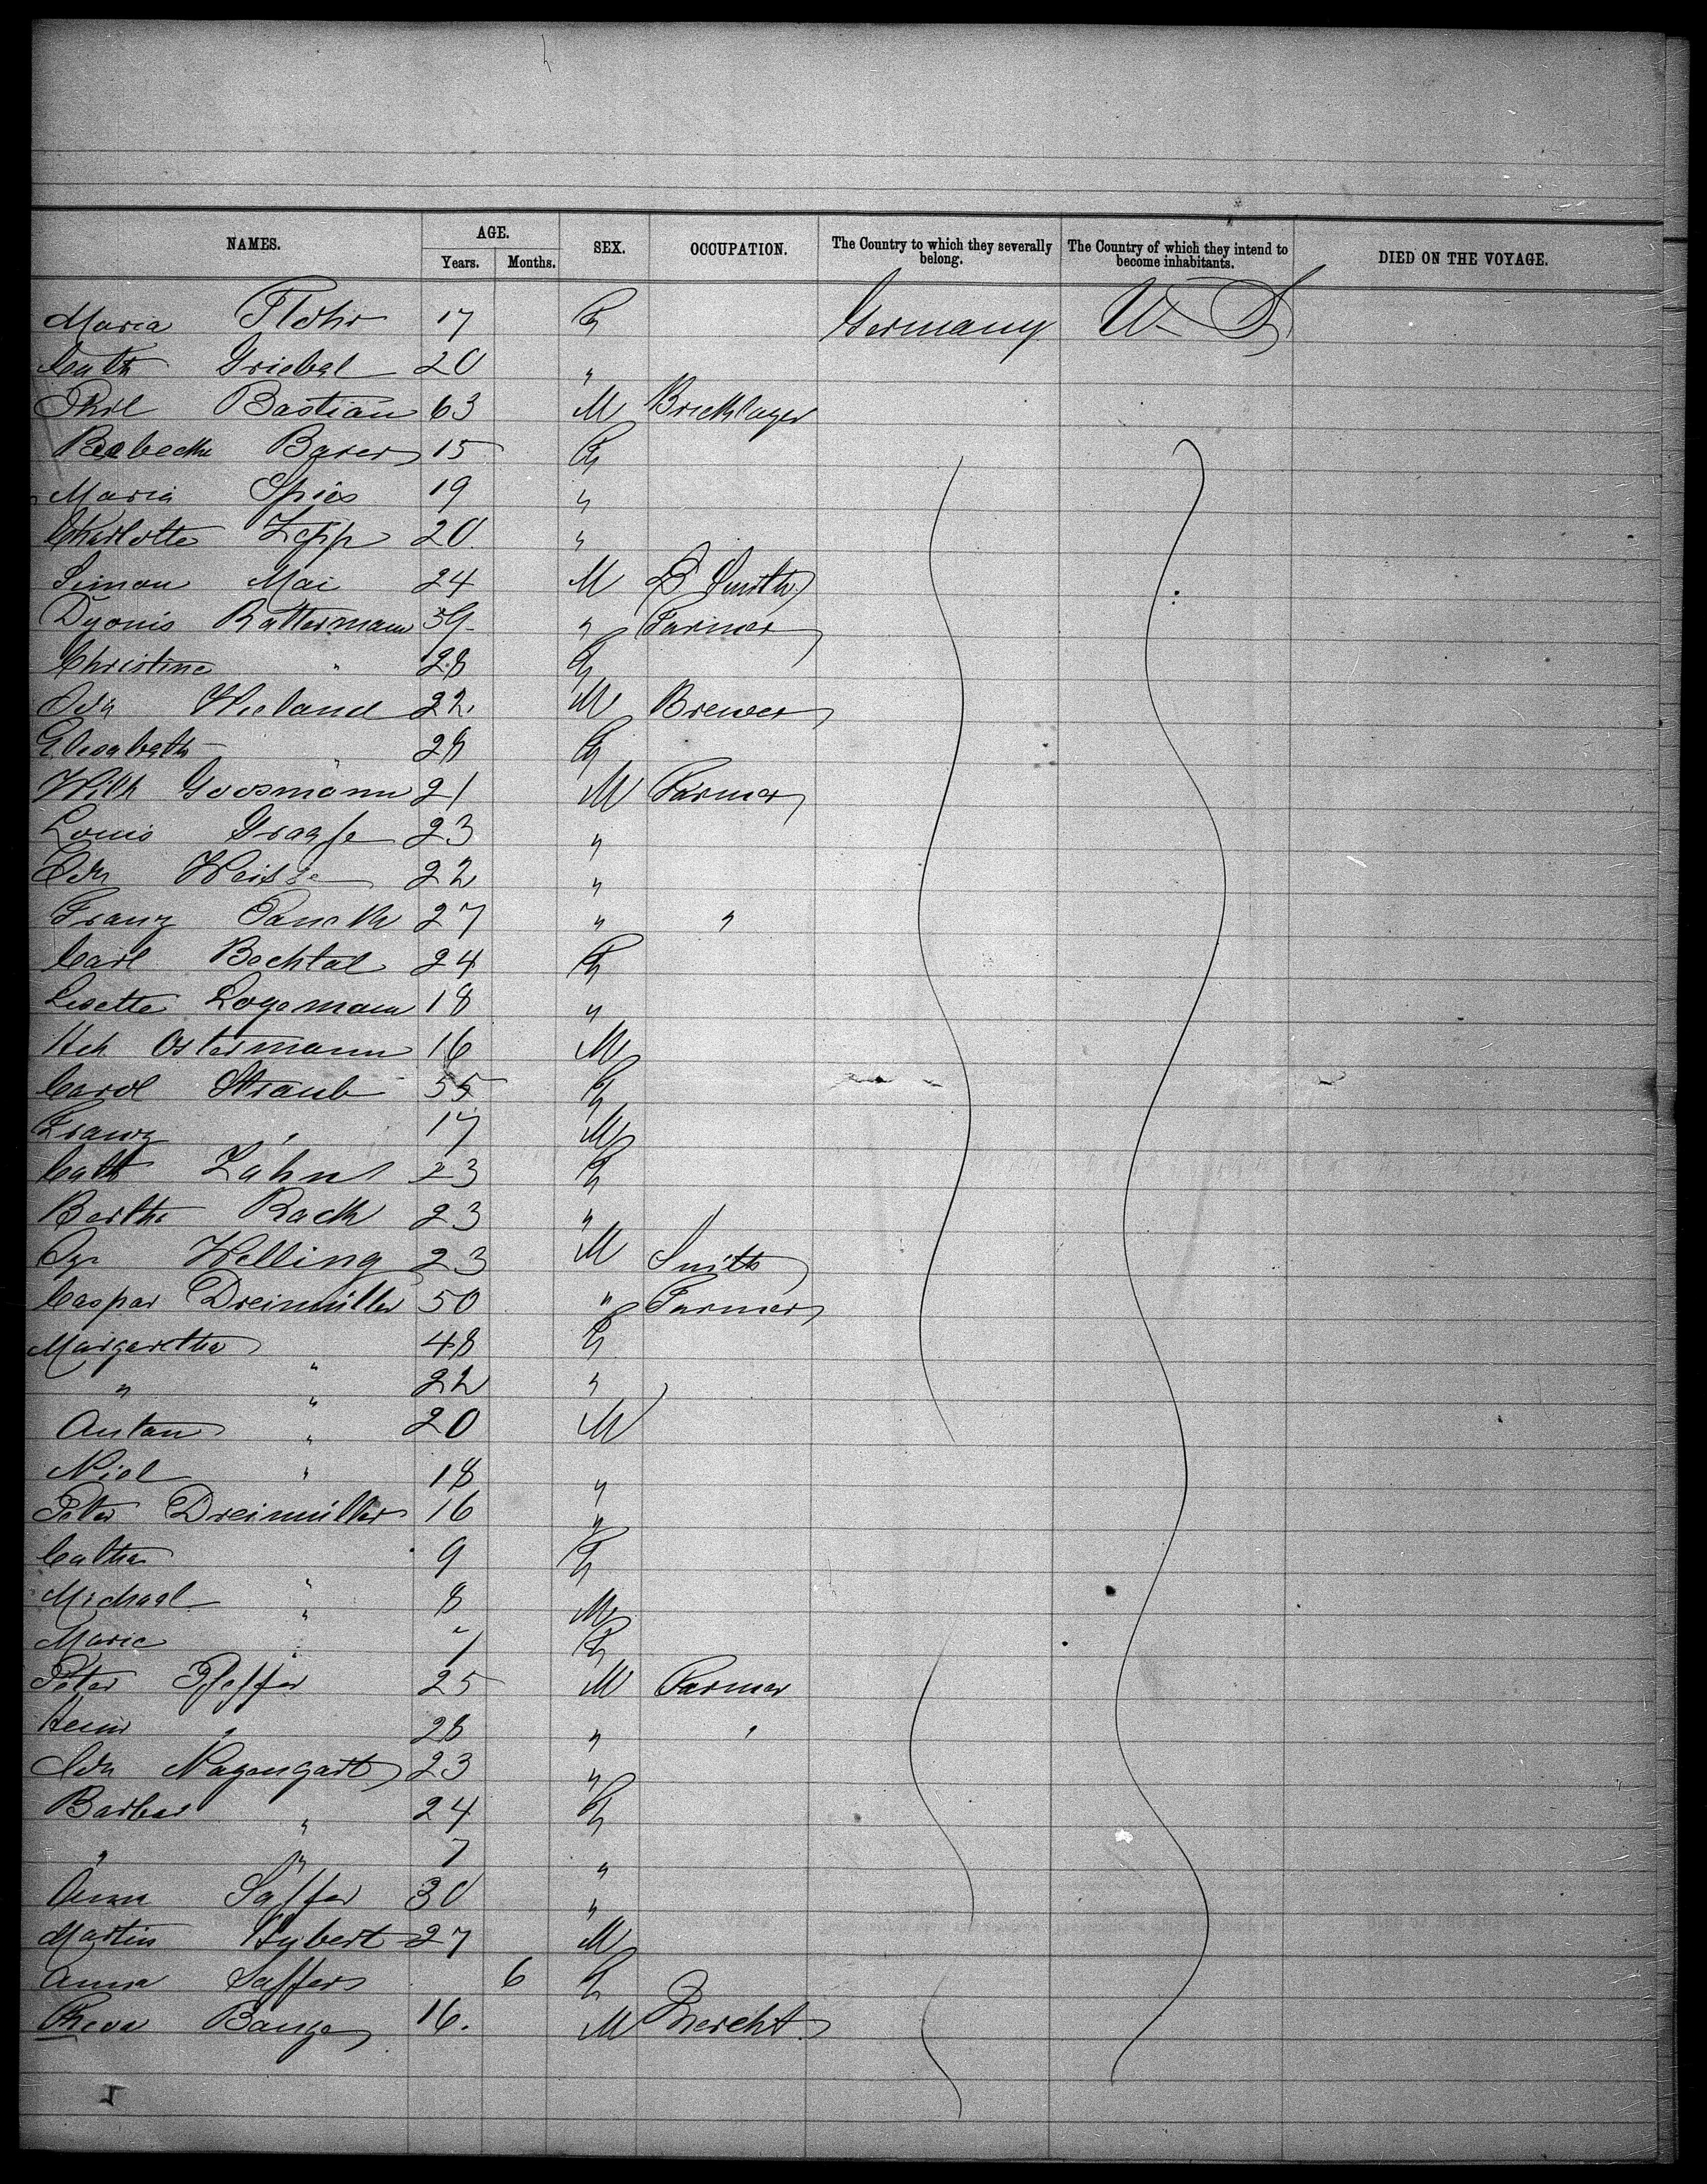 NAMES. AGE. Years. Months. SEX. OCCUPATION. The Country to which they severally belong. The Country of which they intend to become inhabitants. DIED ON THE VOYAGE.
Maria Flohr 17 F Germany U S
Cath Griebel 20 "
Phil Bastian 63 M Bricklayer
Rebecka Barer 15 F
Maria Spies 19 "
Charlotte Zepp 20 "
Simon Mai 24 M B Smith
Dyonis Rattermann 39 " Farmer
Christine " 28 F
Wieland 22 M Brewer
Elisabeth " 28 F
Wilh Goosmann 21 M Farmer
Louis Graafe 23 "
Weisse 22 "
Franz 27 " "
Carl Bechtal 24 F
Lisette Logemann 18 "
Hch Ostermann 16 M
Carol Straub 55 F
Franz " 17 M
Cath Zahn 23 F
Bertha Rack 23 "
Welling 23 M Smith
Caspar Dreimüller 50 " Farmer
Margaretha " 48 F
" " 22 "
Anton " 20 M
Nicl " 18 "
Peter Dreimüller 16 "
Catha " 9 F
Michael " 8 M
Marie " 7 F
Peter Pfeffer 25 M Farmer
Heinr " 28 " "
Nagengart 23 "
Barbar " 24 F
" " 7 "
Anna Saffer 30 "
Martin Hybert 27 M
Anna Saffer 6 F
Bange 16. M Knecht